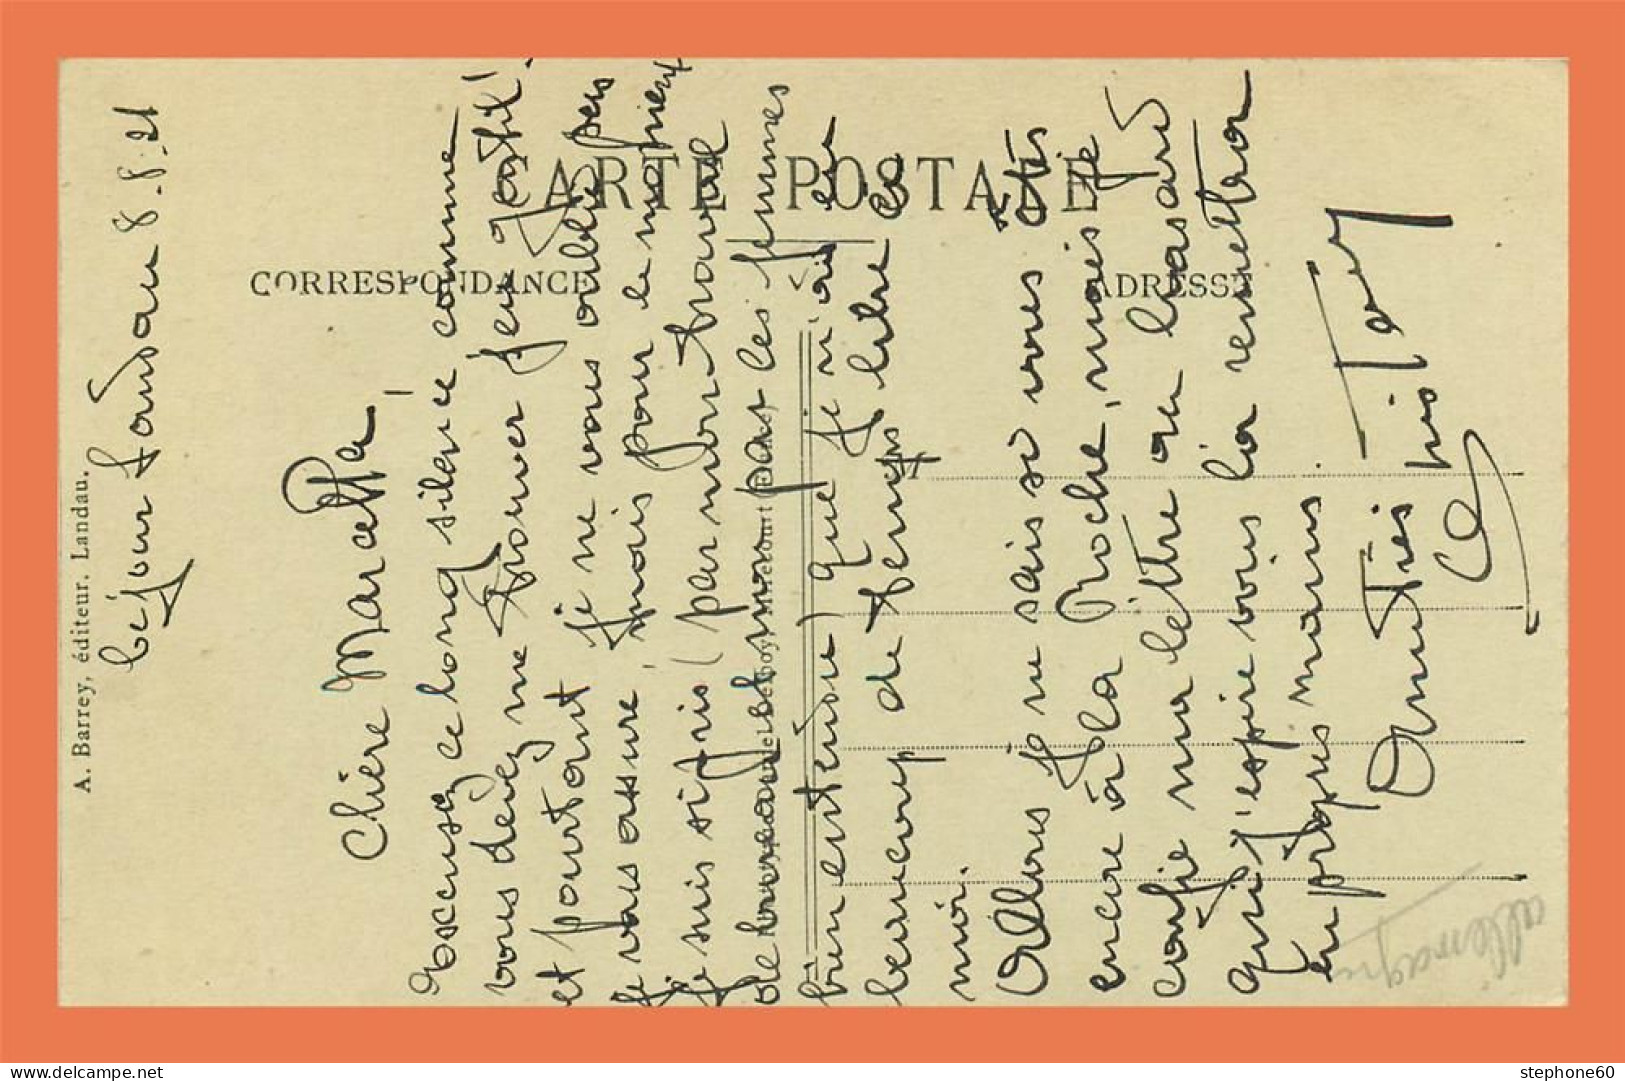 CARTE POSTALE
CORRESPONDANCE
ADRESSE
A. Barrey, éditeur. Landau.
ce jour Landau 8.8.21
Chère Marcella,
Excusez ce long silence comme
vous devez me trouver peu gentil!
et pourtant je ne vous oublie pas
je vous assure, mais pour le moment
je suis si pris (par mon travail
de bureau et non par les femmes
bien entendu) que je n'ai eu
beaucoup de temps libre à
moi.
Alors je ne sais si vous êtes
encore à la Roche, mais je
confie ma lettre au hasard
qui j'espère vous la remettra
en propres mains.
Amitiés
allemagne
stephone60